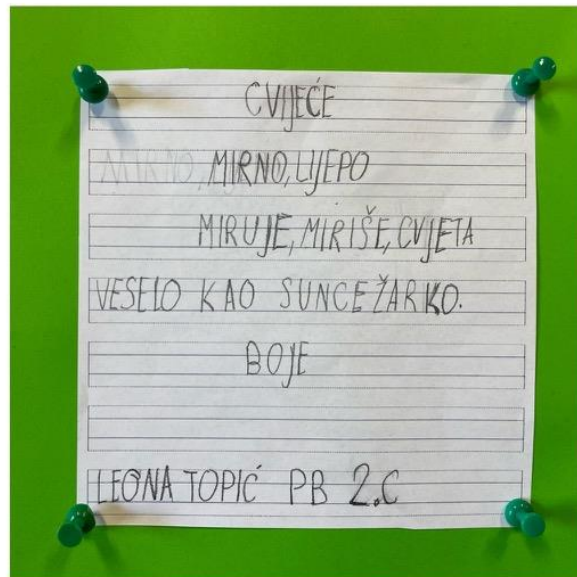 CVIJEĆE
MIRNO, MIRNO, LIJEPO
MIRUJE, MIRIŠE, CVJETA
VESELO KAO SUNCE ŽARKO.
BOJE
LEONA TOPIĆ PB 2.C